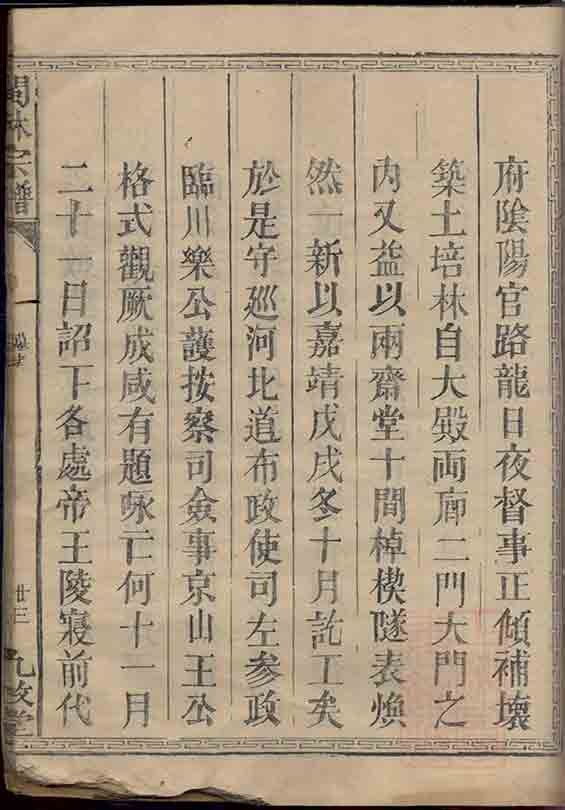 府陰陽官路龍日夜督事正傾補壞
築土培林自大殿両廊二門大門之
內又益以兩齋堂十間棹楔隧表煥
然一新以嘉靖戊戌冬十月訖工矣
於是守巡河北道布政使司左參政
臨川樂公護按察司僉事京山王公
格式觀厥成咸有題咏亡何十一月
二十一日詔下各處帝王陵寢前代
林宗譜
廿三